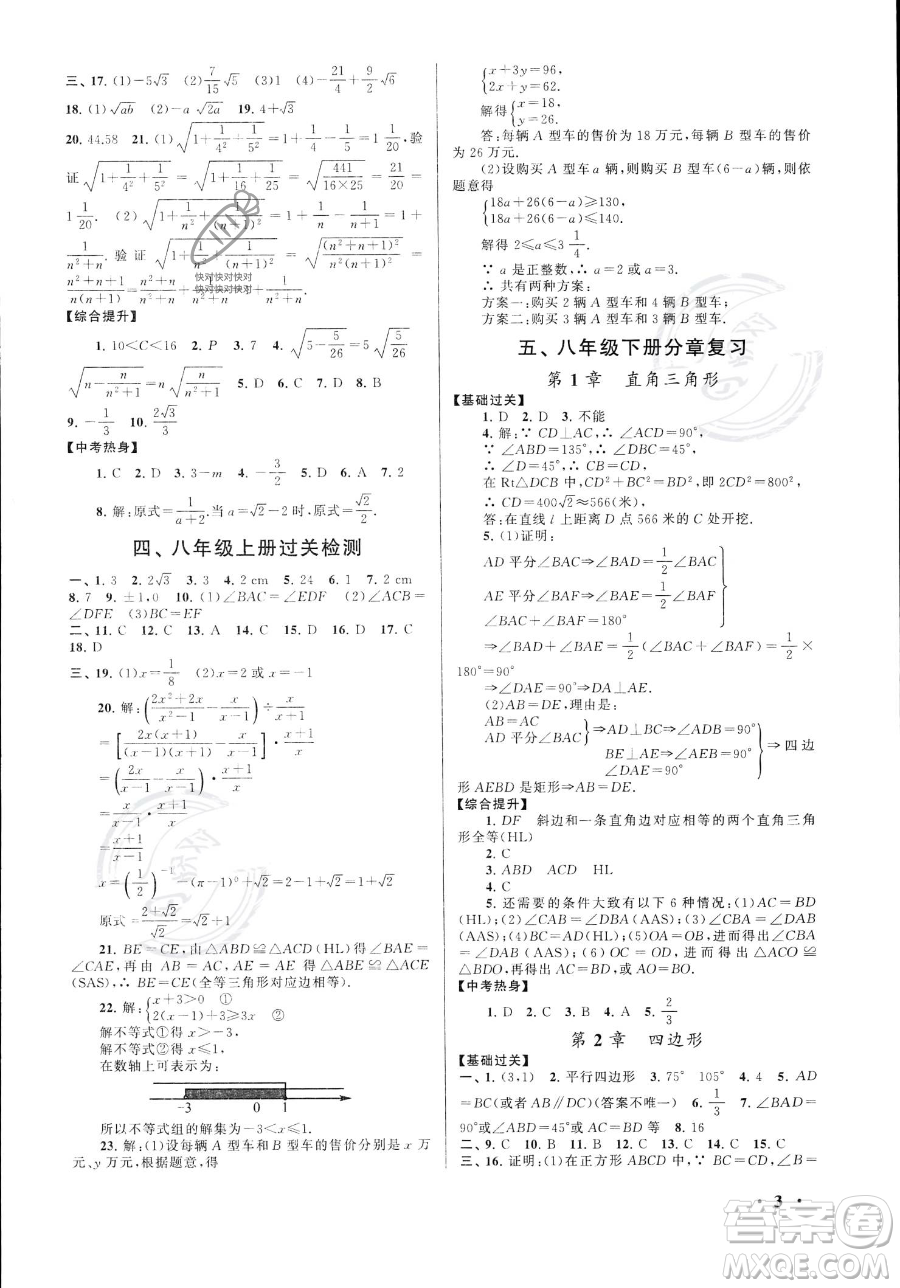 三、17. (1)-5√3 (2)7/15√5 (3)1 (4)-21/4+9/2√6
18. (1)√ab (2)-a√2a 19. 4+√3
20. 44.58 21. (1)√(1+1/4²+1/5²)=1+1/4-1/(4+1)=1 1/20, 验
证√(1+1/4²+1/5²)=√(1+1/16+1/25)=√(441/(16×25))=
1 1/20. (2)√(1+1/n²+1/(n+1)²)=1+1/n-1/(n+1)=1+
1/(n²+n). 验证√(1+1/n²+1/(n+1)²)=√((n²+n+1)²/(n²(n+1)²))=
快对快对快对
快对快对快对
【综合提升】
1. 10<C<16 2. P 3. 7 4. √(5-5/26)=5√(5/26)
√(n-n/(n²+1))=n√(n/(n²+1)) 5. D 6. D 7. C 8. D
9. -1/3 10. 2√3/3
【中考热身】
1. C 2. D 3. 3-m 4. -3/2 5. D 6. A 7. 2
8. 解:原式=1/(a+2). 当a=√2-2时,原式=√2/2.
四、八年级上册过关检测
一、1. 3 2. 2√3 3. 3 4. 2 cm 5. 24 6. 1 7. 2 cm
8. 7 9. ±1,0 10. (1)∠BAC=∠EDF (2)∠ACB=
∠DFE (3)BC=EF
二、11. C 12. C 13. C 14. C 15. D 16. D 17. C
18. D
三、19. (1)x=1/8 (2)x=2或x=-1
20. 解:((2x²+2x)/(x²-1)-x/(x-1))÷x/(x+1)
=[2x(x+1)/((x-1)(x+1))-x/(x-1)]·(x+1)/x
=(2x/(x-1)-x/(x-1))·(x+1)/x
=x/(x-1)·(x+1)/x
=(x+1)/(x-1)
x=(1/2)⁻¹-(π-1)⁰+√2=2-1+√2=1+√2
原式=(2+√2)/√2=√2+1
21. BE=CE,由△ABD≌△ACD得∠BAE=
∠CAE,再由 AB=AC,AE=AE得△ABE≌△ACE
(SAS),∴BE=CE(全等三角形对应边相等).
22. 解:{x+3>0 ①
2(x-1)+3≥3x ②
解不等式①得 x>-3,
解不等式②得 x≤1.
在数轴上可表示为:
-3 0 1
所以不等式组的解集为-3<x≤1.
23. 解:(1)设每辆 A 型车和 B 型车的售价分别是 x 万
元、y 万元,根据题意,得
{x+3y=96,
2x+y=62.
解得{x=18,
y=26.
答:每辆 A 型车的售价为 18 万元,每辆 B 型车的售价
为 26 万元.
(2)设购买 A 型车 a 辆,则购买 B 型车(6-a)辆,则依
题意得
{18a+26(6-a)≥130,
18a+26(6-a)≤140.
解得 2≤a≤3 1/4.
∵ a 是正整数,∴ a=2或a=3.
∴ 共有两种方案:
方案一:购买 2 辆 A 型车和 4 辆 B 型车;
方案二:购买 3 辆 A 型车和 3 辆 B 型车.
五、八年级下册分章复习
第 1 章 直角三角形
【基础过关】
1. D 2. D 3. 不能
4. 解:∵ CD⊥AC,∴∠ACD=90°,
∵ ∠ABD=135°,∴∠DBC=45°,
∴ ∠D=45°,∴ CB=CD,
在 Rt△DCB 中,CD²+BC²=BD²,即 2CD²=800²,
∴ CD=400√2≈566(米),
答:在直线 l 上距离 D 点 566 米的 C 处开挖.
5. (1)证明:
AD 平分∠BAC⇒∠BAD=1/2∠BAC
AE 平分∠BAF⇒∠BAE=1/2∠BAF
∠BAC+∠BAF=180°
⇒∠BAD+∠BAE=1/2(∠BAC+∠BAF)=1/2×
180°=90°
⇒∠DAE=90°⇒DA⊥AE.
(2)AB=DE,理由是:
AB=AC
AD 平分∠BAC}⇒AD⊥BC⇒∠ADB=90°
BE⊥AE⇒∠AEB=90°
∠DAE=90°}⇒四边
形 AEBD 是矩形⇒AB=DE.
【综合提升】
1. DF 斜边和一条直角边对应相等的两个直角三角
形全等(HL)
2. C
3. ABD ACD HL
4. C
5. 还需要的条件大致有以下 6 种情况:(1)AC=BD
(HL) (2)CB=DA(HL) (3)∠CAB=∠DBA(AAS) (4)∠CBA=∠DAB
(AAS) (5)CO=DO,进而得出△ACO≌
△BDO,再进而得出 AC=BD. (6)AO=BO.
【中考热身】
1. D 2. C 3. B 4. A 5. 2/3
第 2 章 四边形
【基础过关】
一、1. (3,1) 2. 平行四边形 3. 75° 105° 4. 4 5. AD
=BC(或者AB∥DC)(答案不唯一) 6. 1/3 7. ∠BAD=
90°或∠ABC=90°或 AC=BD等 8. 16
二、9. C 10. B 11. B 12. C 13. C 14. C 15. C
三、16. 证明:(1)在正方形 ABCD 中,∵ BC=DC,∠B=
3
答案圈